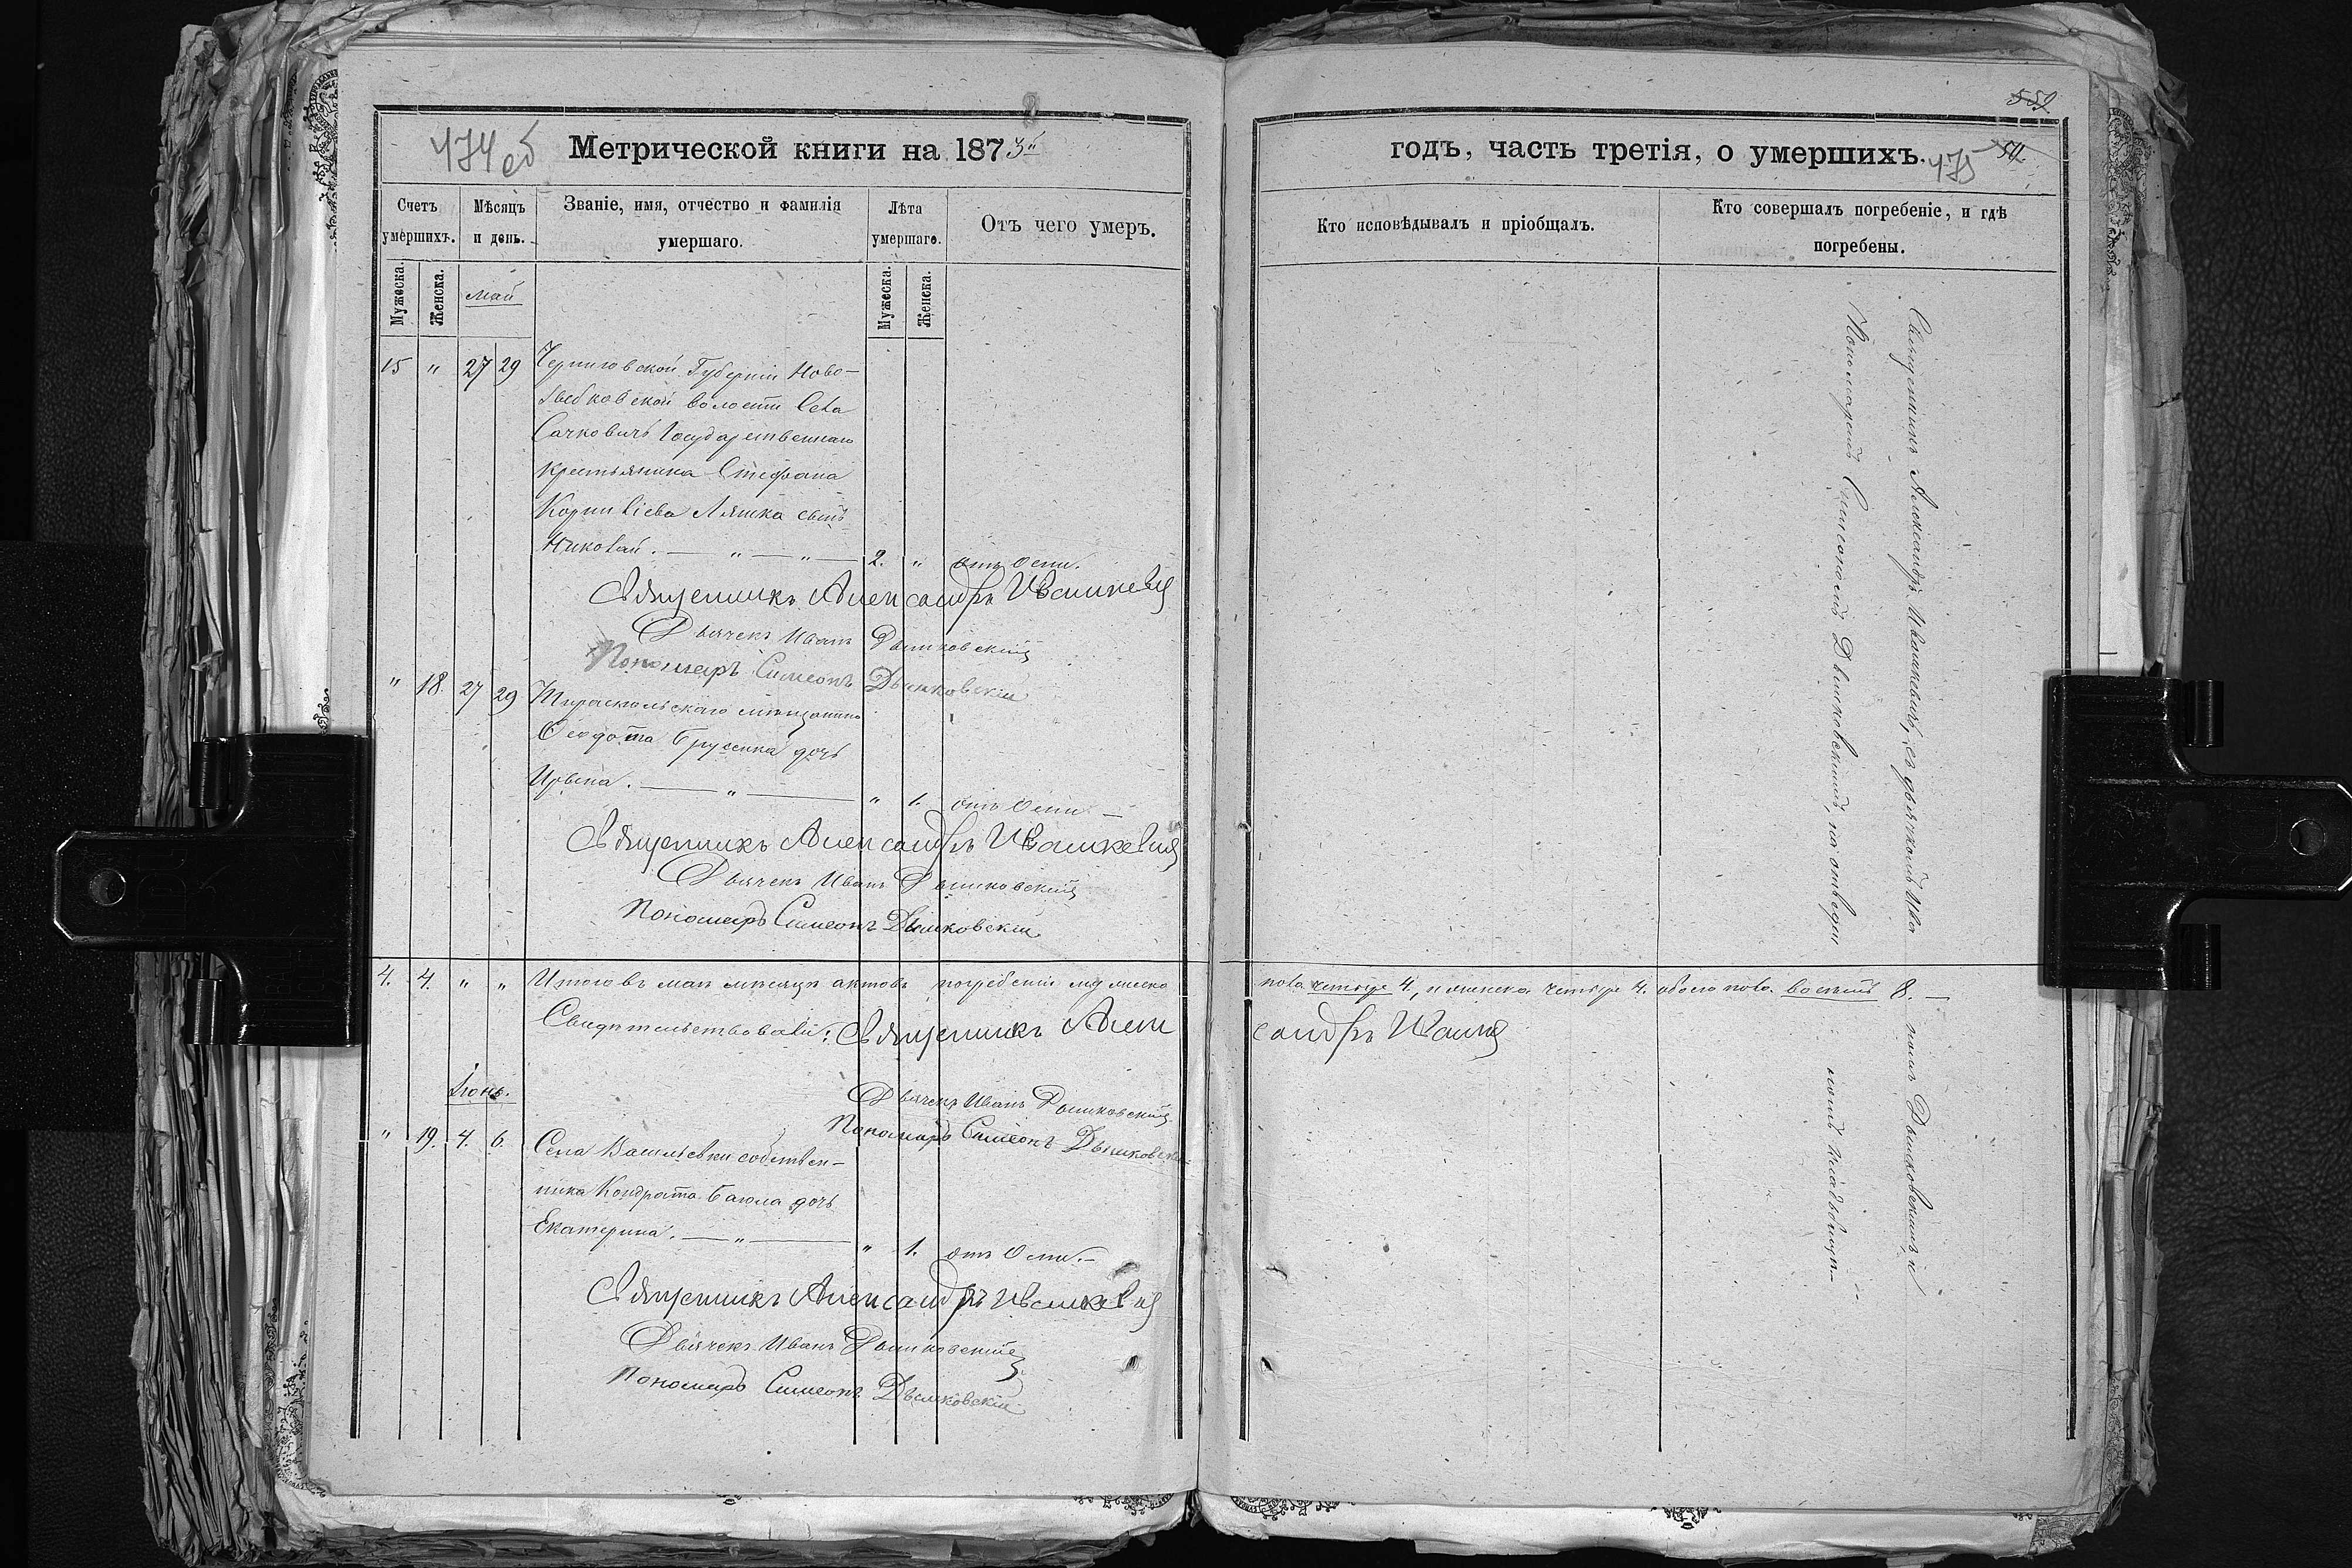 474 об
Метрической книги на 1873й
Счетъ умершихъ.
Мѣсяцъ и день.
Званіе, имя, отчество и фамилія умершаго.
Лѣта умершаго.
Отъ чего умеръ.
Мужеска. Женска.
Май
Мужеска. Женска.
15 " 27 29 Черниговской Губерніи Ново-
зыбковской волости Села
Сачковичъ Государственнаго
крестьянина Стефана
Корнилiева Ляшка сынъ
Николай. — " — " — 2. " отъ Оспи.
Священникъ Александръ Ивашкевич
Дьячекъ Иванъ Дышковскій
Пономаръ Симеонъ Дышковскій
" 18. 27 29 Тираспольскаго мѣщанина
Ѳеодота Брусенка дочь
Ирина. — " — " 1. отъ Оспи —
Священникъ Александръ Ивашкевич
Дьячекъ Иванъ Дышковскій
Пономаръ Симеонъ Дышковскій
4. 4. " " Итого въ маѣ мѣсяцѣ актовъ погребенія мужеска
Свидѣтельствовали: Священникъ Алек
Дьячекъ Иванъ Дышковскій
Пономаръ Симеонъ Дышковскій
Іюнь.
" 19. 4. 6. Села Васильевки собствен-
ника Кондрата Баюла дочь
Екатерина. — " — " 1. отъ Оспи. —
Священникъ Александръ Ивашкевич
Дьячекъ Иванъ Дышковскій
Пономаръ Симеонъ Дышковскій
559
годъ, часть третія, о умершихъ.
475
Кто исповѣдывалъ и пріобщалъ.
Кто совершалъ погребеніе, и гдѣ погребены.
Священникъ Александръ Ивашкевичъ, съ дьячкомъ Ива
Пономаремъ Симеономъ Дышковскимъ, на отведен
пола четыре 4, и женска четыре 4. обоего пола восемь 8. —
сандръ Ивашк
номъ Дышковскимъ и
номъ кладбищѣ. —